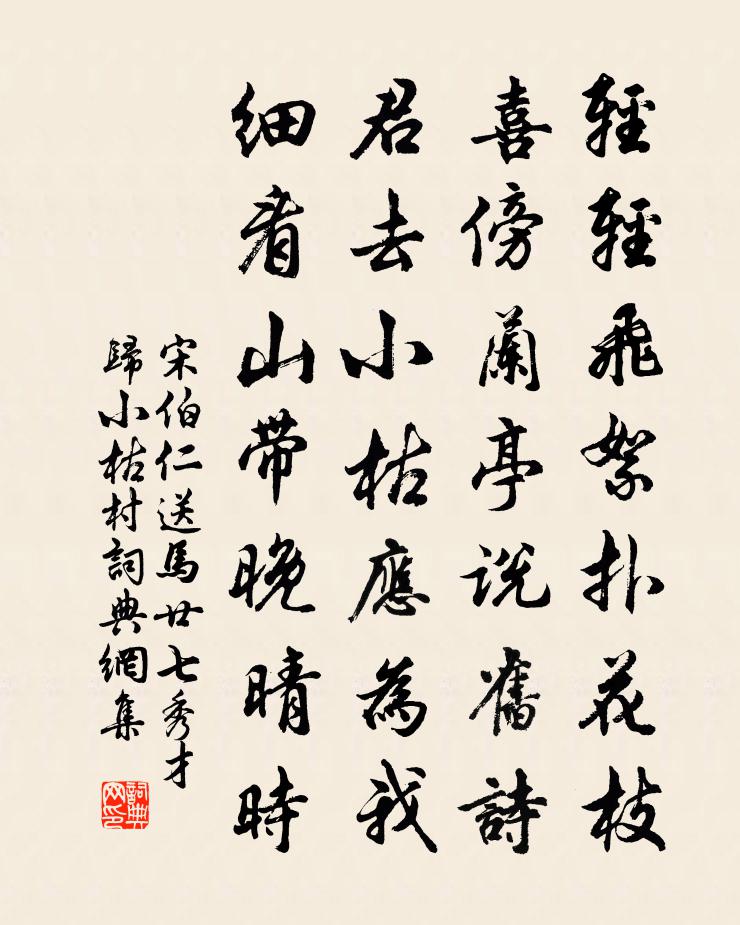 輕輕飛絮扑花枝
喜傍蘭亭説舊詩
君去小枯應為我
细看山帶晚晴時
宋伯仁送馬廿七秀才
歸小枯村詞典網集
詞典
网印